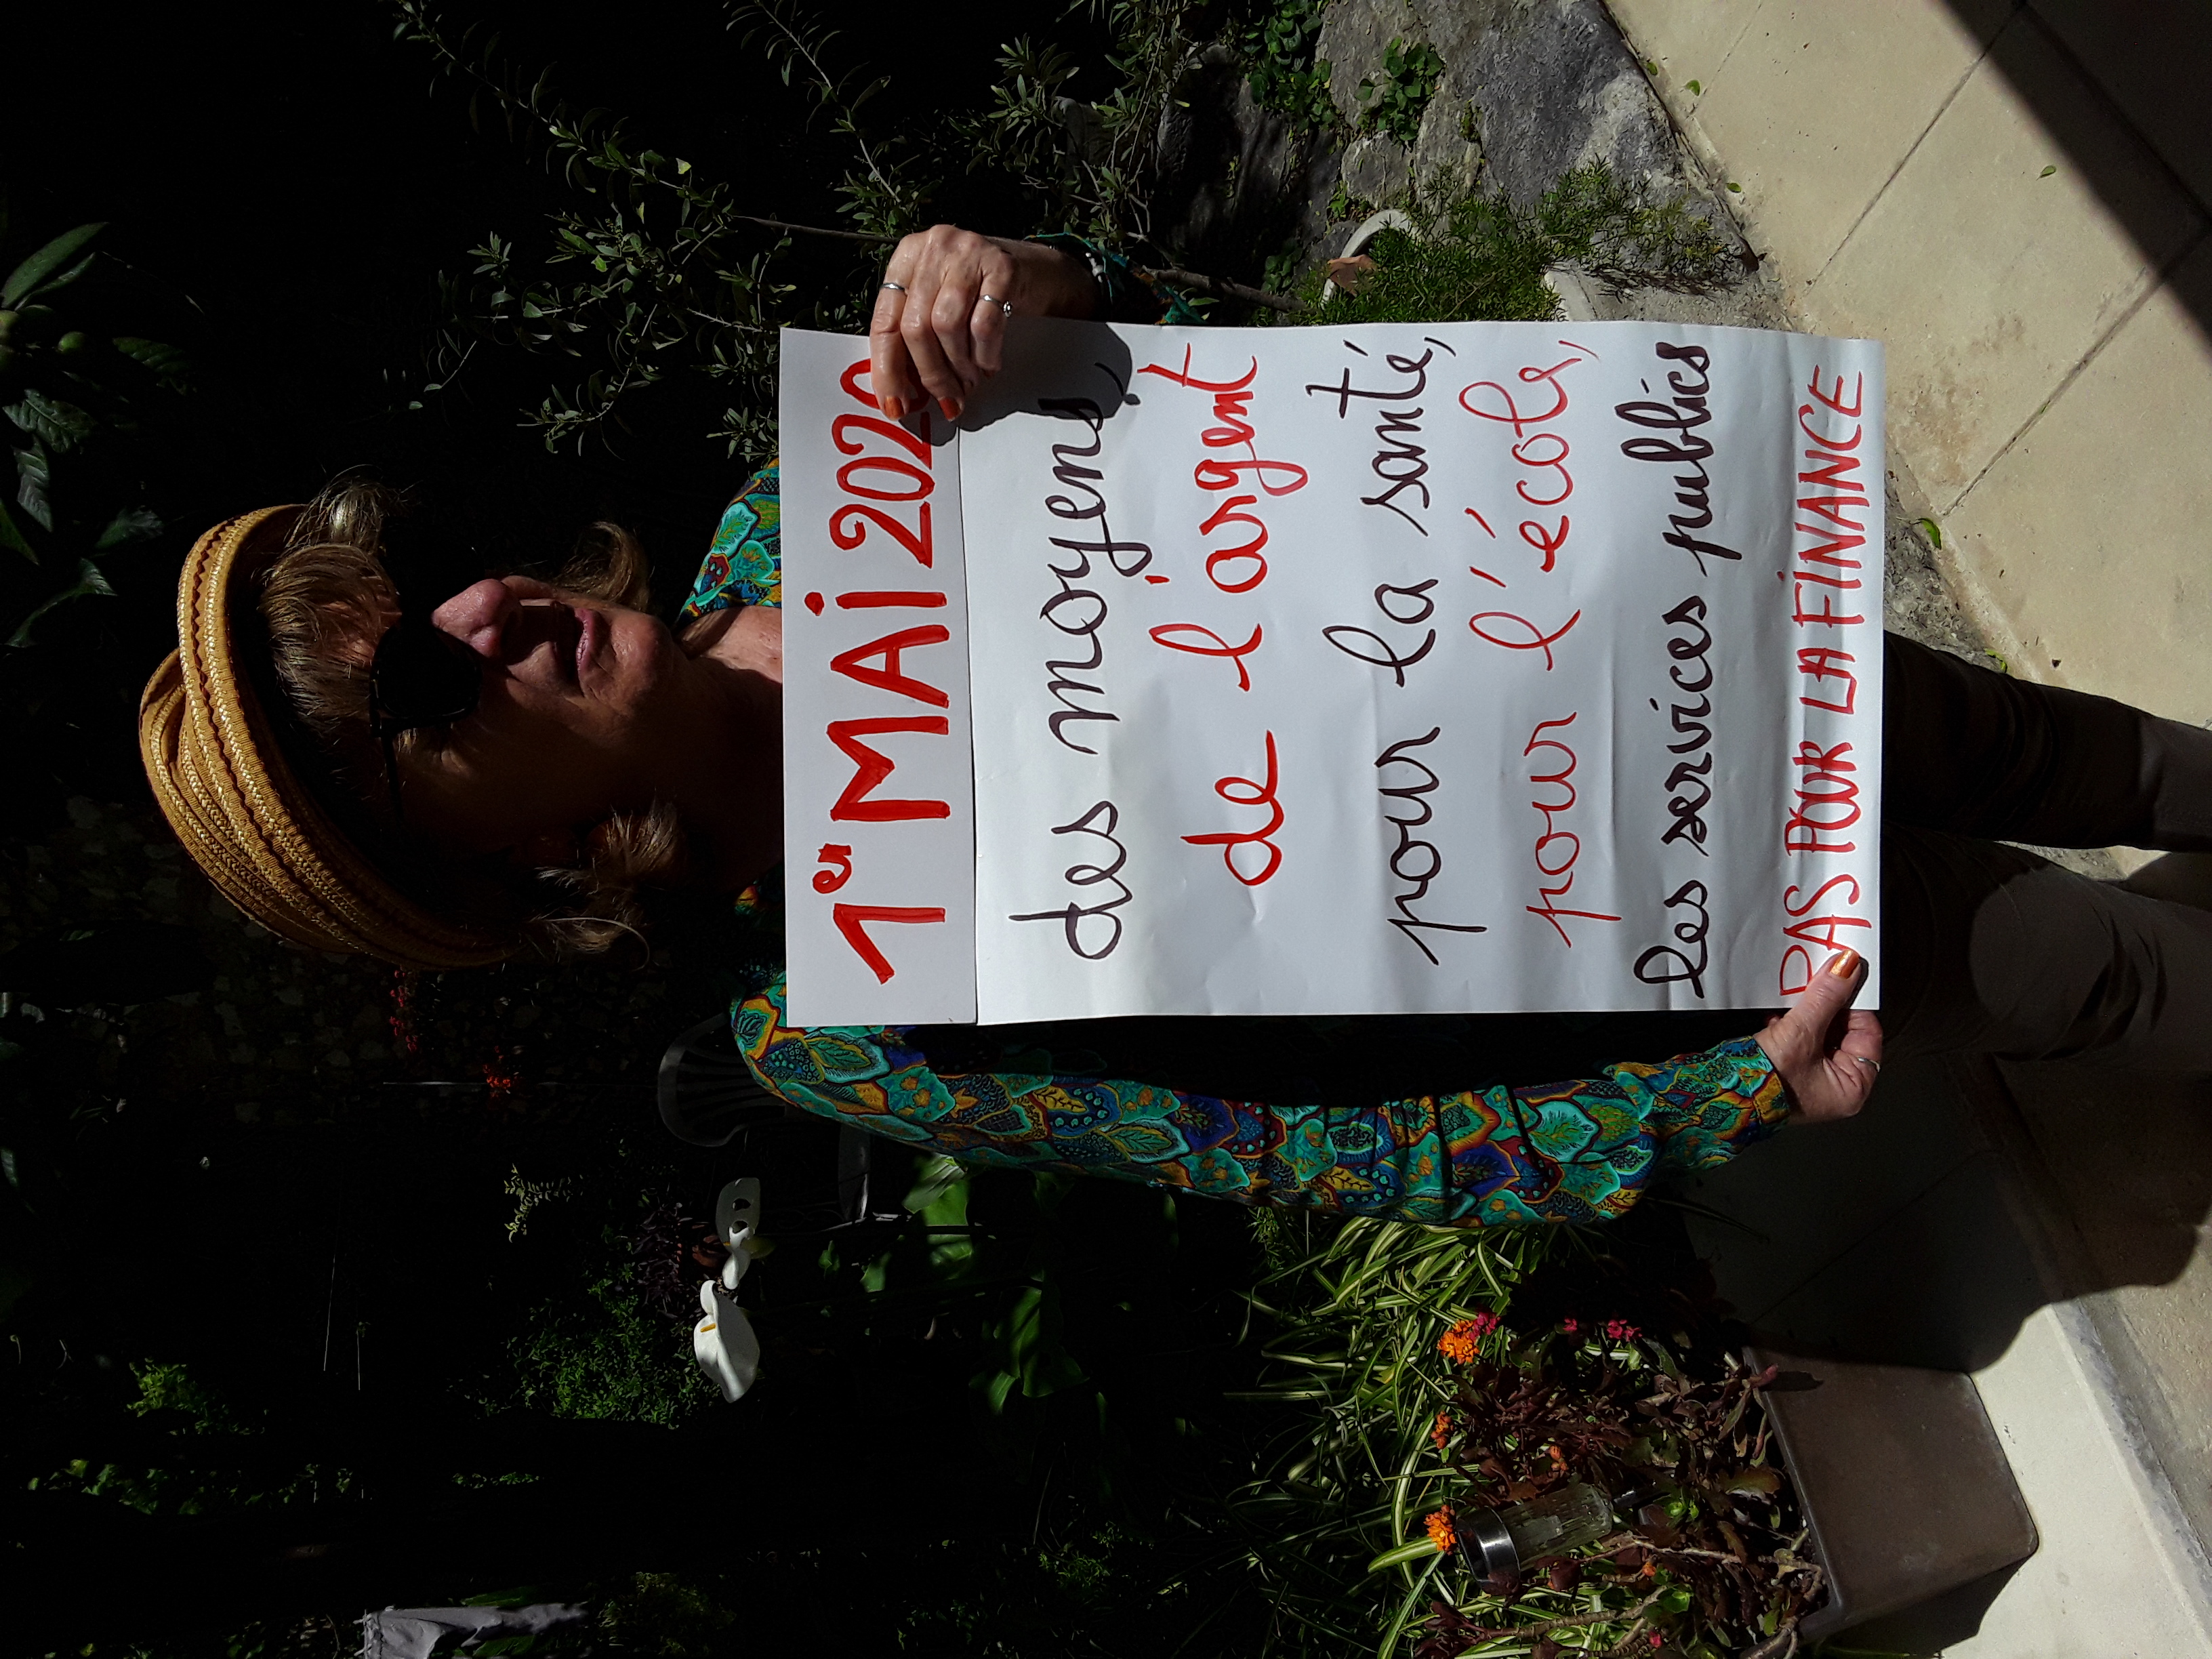 1er MAi 2020
des moyens,
de l'argent
pour la santé,
pour l'école,
les services publics
PAS POUR LA FiNANCE